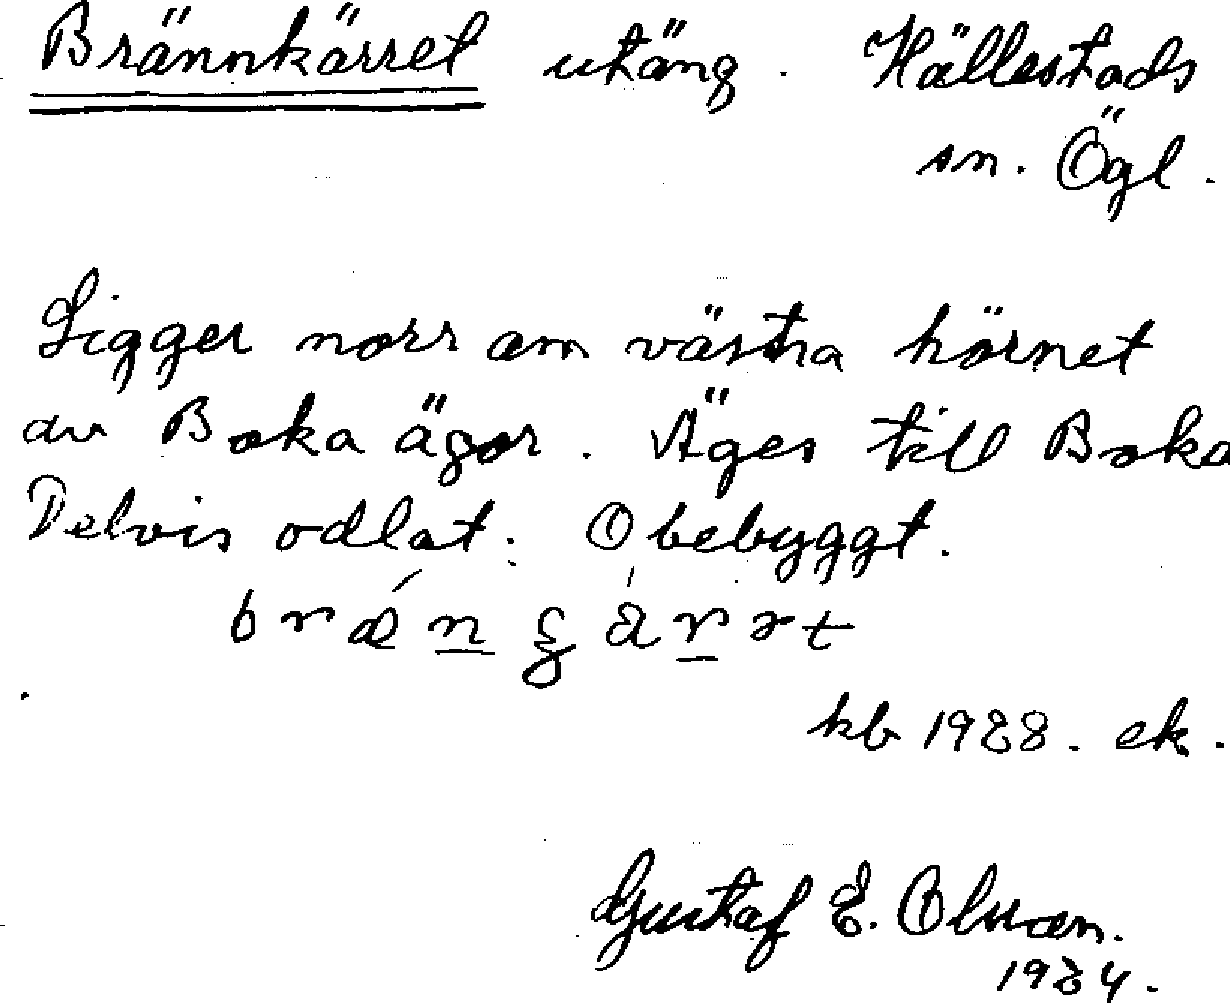 Brännkärret utäng. Hällestads
sn. Ögl.
Ligger norr om västra hörnet
av Boka ägor. Äges till Boka
Delvis odlat. Obebyggt.
kb 1928. ek.
Gustaf E. Olsson.
1934.